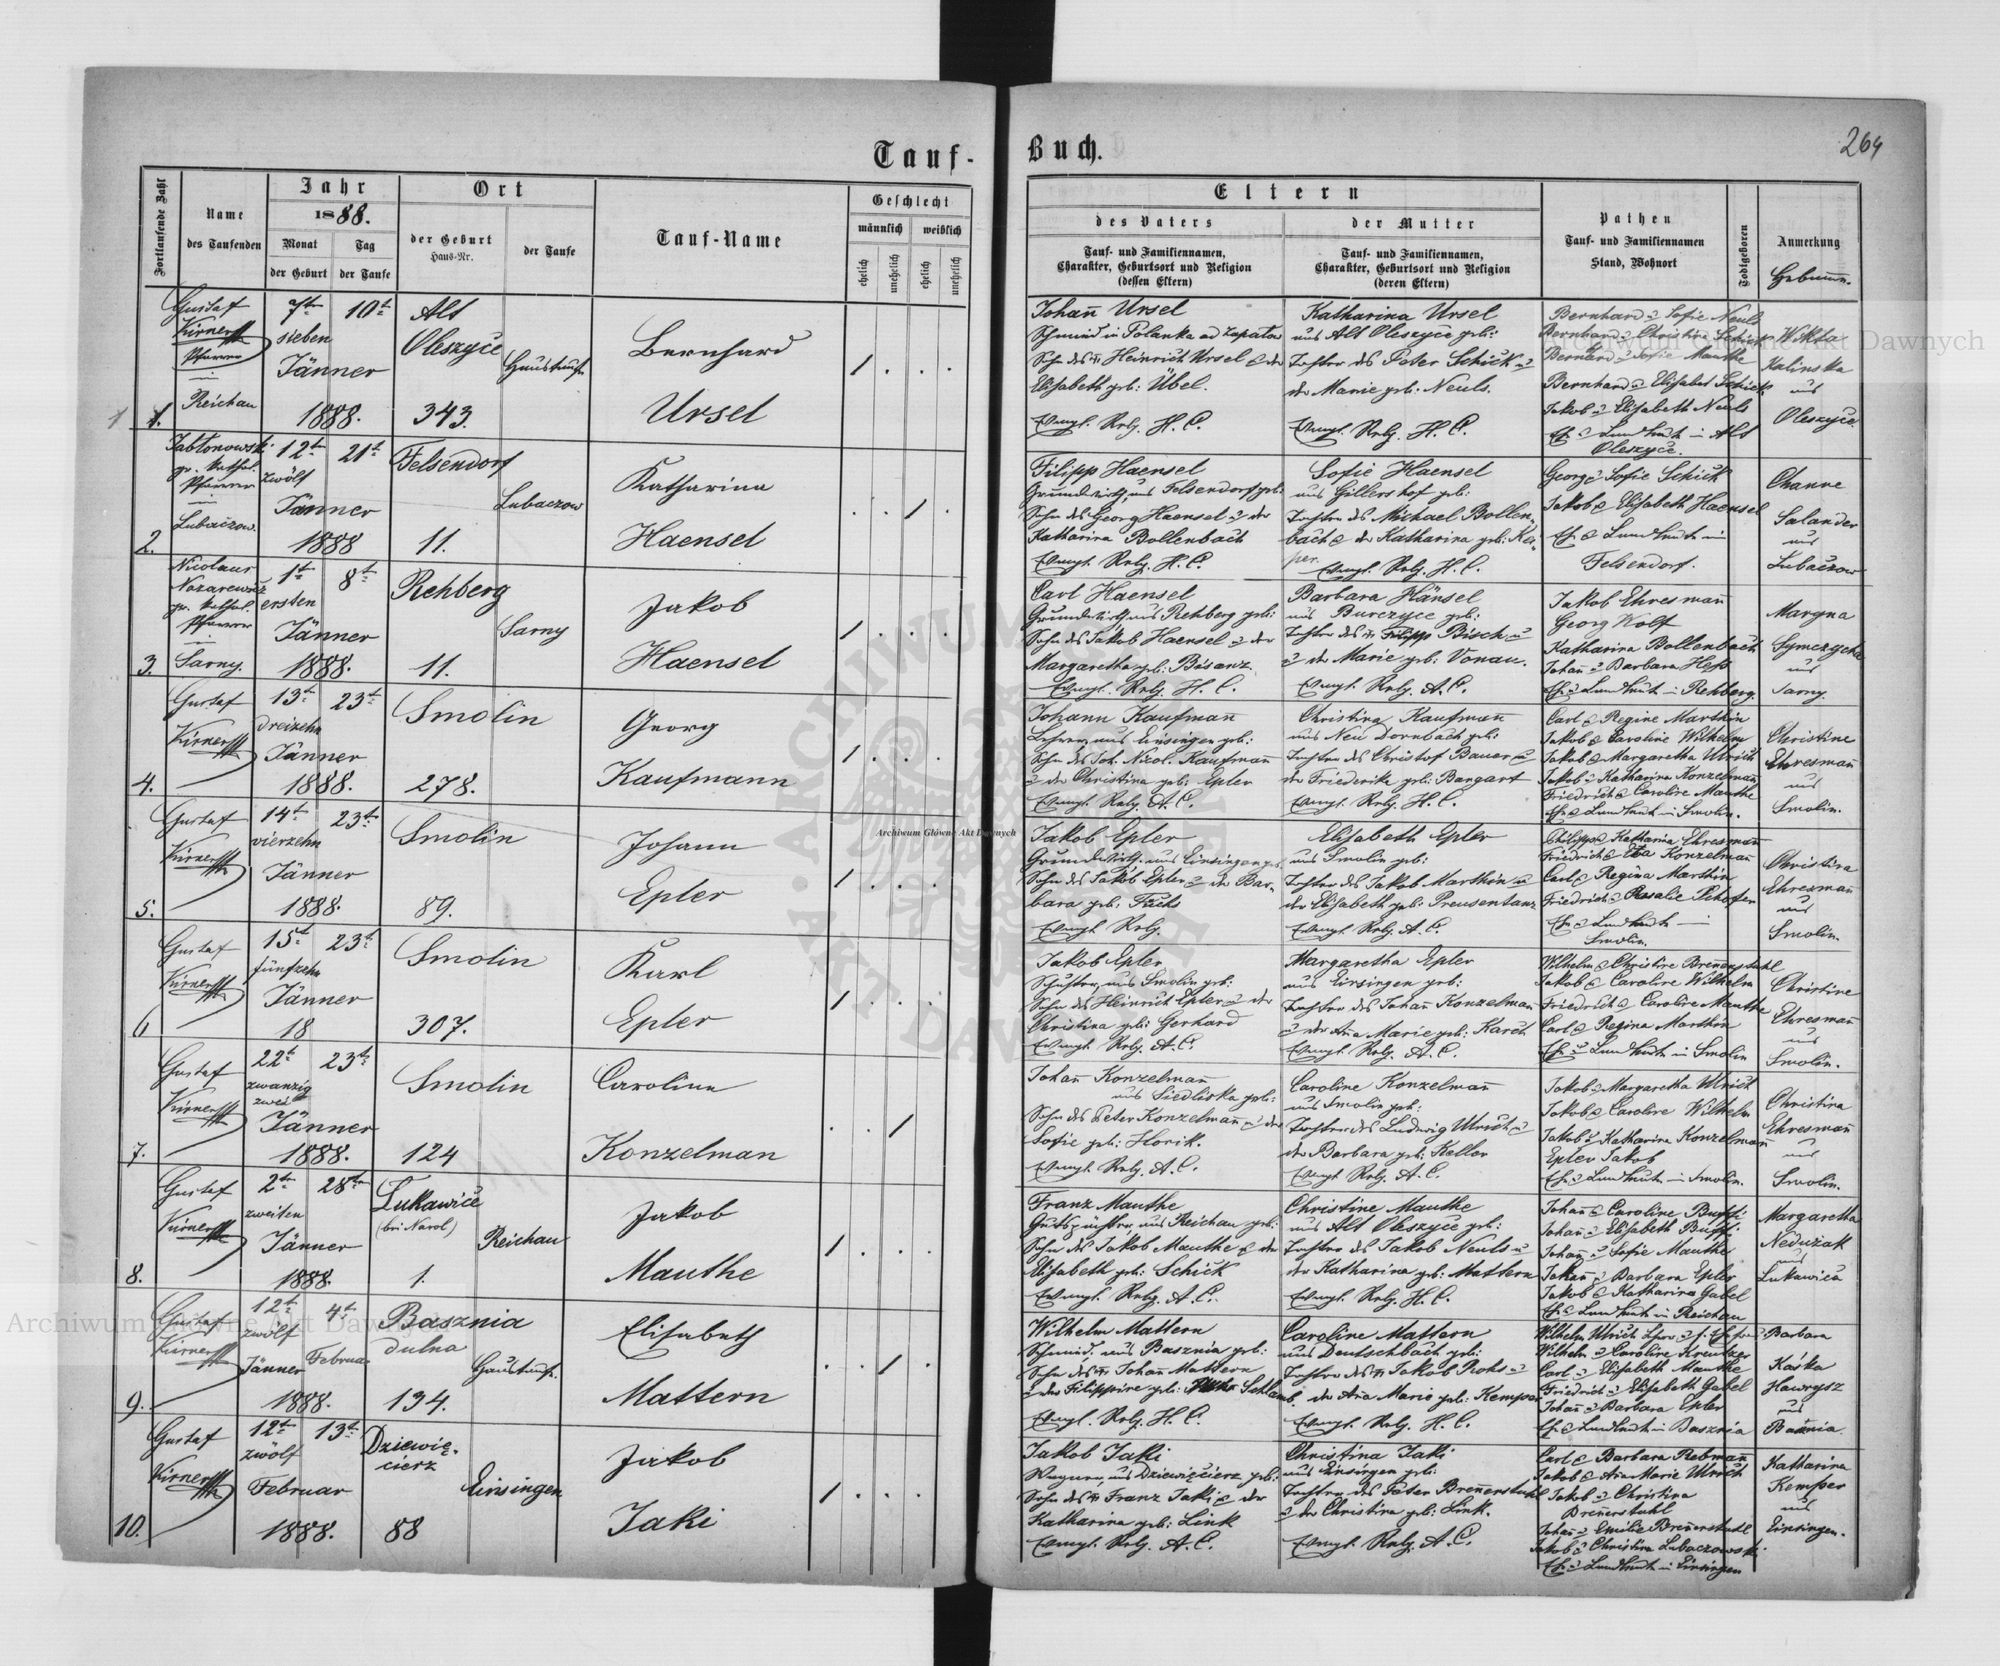 Tauf-Buch.
264
Fortlaufende Zahl
Name
des Taufenden
Jahr
1888.
Monat
der Geburt
Tag
der Taufe
Ort
der Geburt
Haus-Nr.
der Taufe
Tauf-Name
Geschlecht
männlich
weiblich
ehelich
unehelich
ehelich
unehelich
Eltern
des Vaters
Tauf- und Familiennamen,
Charakter, Geburtsort und Religion
(dessen Eltern)
der Mutter
Tauf- und Familiennamen,
Charakter, Geburtsort und Religion
(deren Eltern)
Pathen
Tauf- und Familiennamen
Stand, Wohnort
Todtgeboren
Anmerkung
1.
Gustaf
Kirner
Pfarrer
in
Reichau
7t
sieben
Jänner
1888.
10t
Alt
Oleszyce
343.
Haustaufe
Bernhard
Ursel
Johann Ursel
Schmied in Polanka ad Zapałow
Sohn des Heinrich Ursel u der
Elisabeth geb: Übel.
Evangl. Relg. H. C.
Katharina Ursel
aus Alt Oleszyce geb:
Tochter des Peter Schick u
der Marie geb: Neuls.
Evangl. Relg. H. C.
Bernhard u Sofie Neuls
Bernhard u Christine Schick
Bernhard u Sofie Mauthe
Bernhard u Elisabet Schick
Jakob u Elisabeth Neuls
in Alt
Oleszyce.
Wikta
Kalinska
aus
Oleszyce
2.
Jabłonowski
gr. kathol.
Pfarrer
in
Lubaczow.
12t
zwölf
Jänner
1888
21t
Felsendorf
11.
Lubaczow
Katharina
Haensel
Filipp Haensel
Grundwirth aus Felsendorf geb:
Sohn des Georg Haensel u der
Katharina Bollenbach
Evangl. Relg. H. C.
Sofie Haensel
aus Gillershof geb:
Tochter des Michael Bollen-
bach u der Katharina geb: Kem-
per.
Evangl. Relg. H. C.
Georg u Sofie Schick
Jakob u Elisabeth Haensel
Felsendorf.
Channe
Salander
aus
Lubaczow
3.
Nicolaus
Nazarewicz
gr. kathol.
Pfarrer
in
Sarny.
1t
ersten
Jänner
1888.
8t
Rehberg
11.
Sarny
Jakob
Haensel
Carl Haensel
Grundwirth aus Rehberg geb:
Sohn des Jakob Haensel u der
Margaretha geb: Bisanz
Evangl. Relg. H. C.
Barbara Hänsel
aus Burczyce geb:
Tochter des Filipp Bisch u
u der Marie geb: Vonau.
Evangl. Relg. A. C.
Jakob Ehresmann
Georg Wolf
Katharina Bollenbach
Johann u Barbara Heß
in Rehberg.
Maryna
Symczycha
aus
Sarny.
4.
Gustaf
Kirner
13t
dreizehn
Jänner
1888.
23t
Smolin
278.
Georg
Kaufmann
Johann Kaufmann
Lehrer aus Einsingen geb:
Sohn des Joh. Nicol. Kaufmann
u der Christina geb: Epler
Evangl. Relg. A. C.
Christina Kaufmann
aus Neu Dornbach geb:
Tochter des Christof Bauer u
der Friederike geb: Bangart
Evangl. Relg. H. C.
Carl u Regine Marthin
Jakob u Caroline Wilhelm
Jakob u Margaretha Ulrich
Jakob u Katharina Konzelmann
Friedrich u Caroline Mauthe
in Smolin.
Christine
Ehresmann
aus
Smolin.
5.
Gustaf
Kirner
14t
vierzehn
Jänner
1888.
23t
Smolin
89.
Johann
Epler
Jakob Epler
Grundwirth aus Einsingen geb.
Sohn des Jakob Epler u der Bar-
bara geb: Fuchs
Evangl. Relg.
Elisabeth Epler
aus Smolin geb:
Tochter des Jakob Marthin u
der Elisabeth geb: Preusentanz
Evangl. Relg. A. C.
Philipp u Katharina Ehresmann
Friedrich u Eva Konzelmann
Carl u Regina Marthin
Friedrich u Rosalie Pchofer
in
Smolin.
Christina
Ehresmann
aus
Smolin.
6
Gustaf
Kirner
15t
fünfzehn
Jänner
18
23t
Smolin
307.
Karl
Epler
Jakob Epler
Schuster aus Smolin geb:
Sohn des Heinrich Epler u der
Christina geb: Gerhard
Evangl. Relg. A. C.
Margaretha Epler
aus Einsingen geb:
Tochter des Johann Konzelman
u der Ana Marie geb: Karch
Evangl. Relg. A. C.
Wilhelm u Christine Brennenstuhl
Jakob u Caroline Wilhelm
Friedrich u Caroline Mauthe
Carl u Regina Marthin
in Smolin
Christine
Ehresmann
aus
Smolin.
7.
Gustaf
Kirner
22t
zwanzig
zwei
Jänner
1888.
23t
Smolin
124
Caroline
Konzelman
Johann Konzelmann
aus Siedliska geb:
Sohn des Peter Konzelmann u der
Sofie geb: Horik.
Evangl. Relg. A. C.
Caroline Konzelmann
aus Smolin geb:
Tochter des Ludwig Ulrich u
der Barbara geb: Keller
Evangl. Relg. A. C.
Jakob u Margaretha Ulrich
Jakob u Caroline Wilhelm
Jakob u Katharina Konzelmann
Epler Jakob
in Smolin.
Christina
Ehresmann
aus
Smolin.
8.
Gustaf
Kirner
2t
zweiten
Jänner
1888.
28t
Łukawice
(bei Narol)
1.
Reichau
Jakob
Mauthe
Franz Mauthe
Gutspächter aus Reichau geb:
Sohn des Jakob Mauthe u der
Elisabeth geb: Schick
Evangl. Relg. A. C.
Christine Mauthe
aus Alt Oleszyce geb:
Tochter des Jakob Neuls u
der Katharina geb: Mattern
Evangl. Relg. H. C.
Johann u Caroline Buffi
Johann u Elisabeth Buffi
Johann u Sofie Mauthe
Johann u Barbara Epler
Jakob u Katharina Gabel
in Reichau
Margaretha
Nedużak
aus
Łukawica
9.
Gustaf
Kirner
12t
zwölf
Jänner
1888.
4t
Februar
Basznia
dulna
134.
Haustaufe
Elisabeth
Mattern
Wilhelm Mattern
Schmied aus Basznia geb:
Sohn des Johann Mattern
u der Filippine geb: Schlamb.
Evangl. Relg. H. C.
Caroline Mattern
aus Deutschbach geb:
Tochter des Jakob Rohs u
der Ana Marie geb: Kemper
Evangl. Relg. H. C.
Wilhelm Ulrich
Wilhelm u Caroline Kreutzer
Carl u Elisabeth Mauthe
Friedrich u Elisabeth Gabel
Johann u Barbara Epler
in Basznia
Barbara
Kaśka
Hawrysz
aus
Basznia.
10.
Gustaf
Kirner
12t
zwölf
Februar
1888.
13t
Dziewię-
cierz
88
Einsingen
Jakob
Jaki
Jakob Jaki
Wagner aus Dziewięcierz geb:
Sohn des Franz Jaki u der
Katharina geb: Link
Evangl. Relg. A. C.
Christina Jaki
aus Einsingen geb:
Tochter des Peter Brennenstuhl
u der Christina geb: Link.
Evangl. Relg. A. C.
Carl u Barbara Rebmann
Jakob u Ana Marie Ulrich
Jakob u Christina
Brennenstuhl
Johann u Emilie Brennenstuhl
Jakob u Christina Lubaczowski
in Einsingen
Katharina
Kemper
aus
Einsingen.
Archiwum Główne Akt Dawnych
Archiwum Główne Akt Dawnych
Archiwum Główne Akt Dawnych